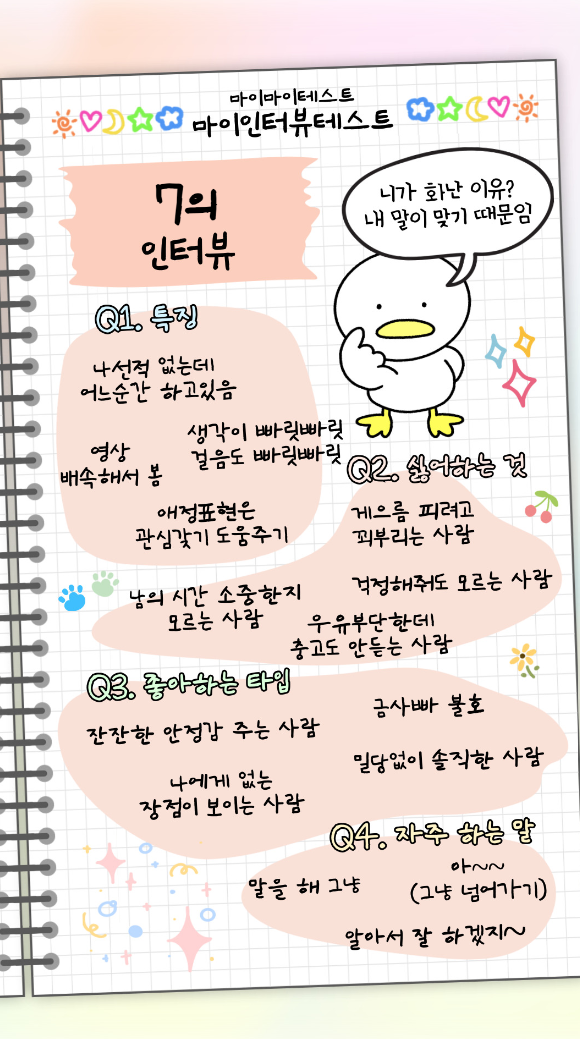 마이마이테스트
마이인터뷰테스트
7의
인터뷰
니가 화난 이유?
내 말이 맞기 때문임
Q1. 특징
나선적 없는데
어느순간 하고있음
생각이 빠릿빠릿
걸음도 빠릿빠릿
영상
배속해서 봄
애정표현은
관심갖기 도움주기
Q2. 싫어하는 것
게으름 피려고
꾀부리는 사람
남의 시간 소중한지
모르는 사람
걱정해줘도 모르는 사람
우유부단한데
충고도 안듣는 사람
Q3. 좋아하는 타입
잔잔한 안정감 주는 사람
금사빠 불호
나에게 없는
장점이 보이는 사람
밀당없이 솔직한 사람
Q4. 자주 하는 말
말을 해 그냥
아~~
(그냥 넘어가기)
알아서 잘 하겠지~